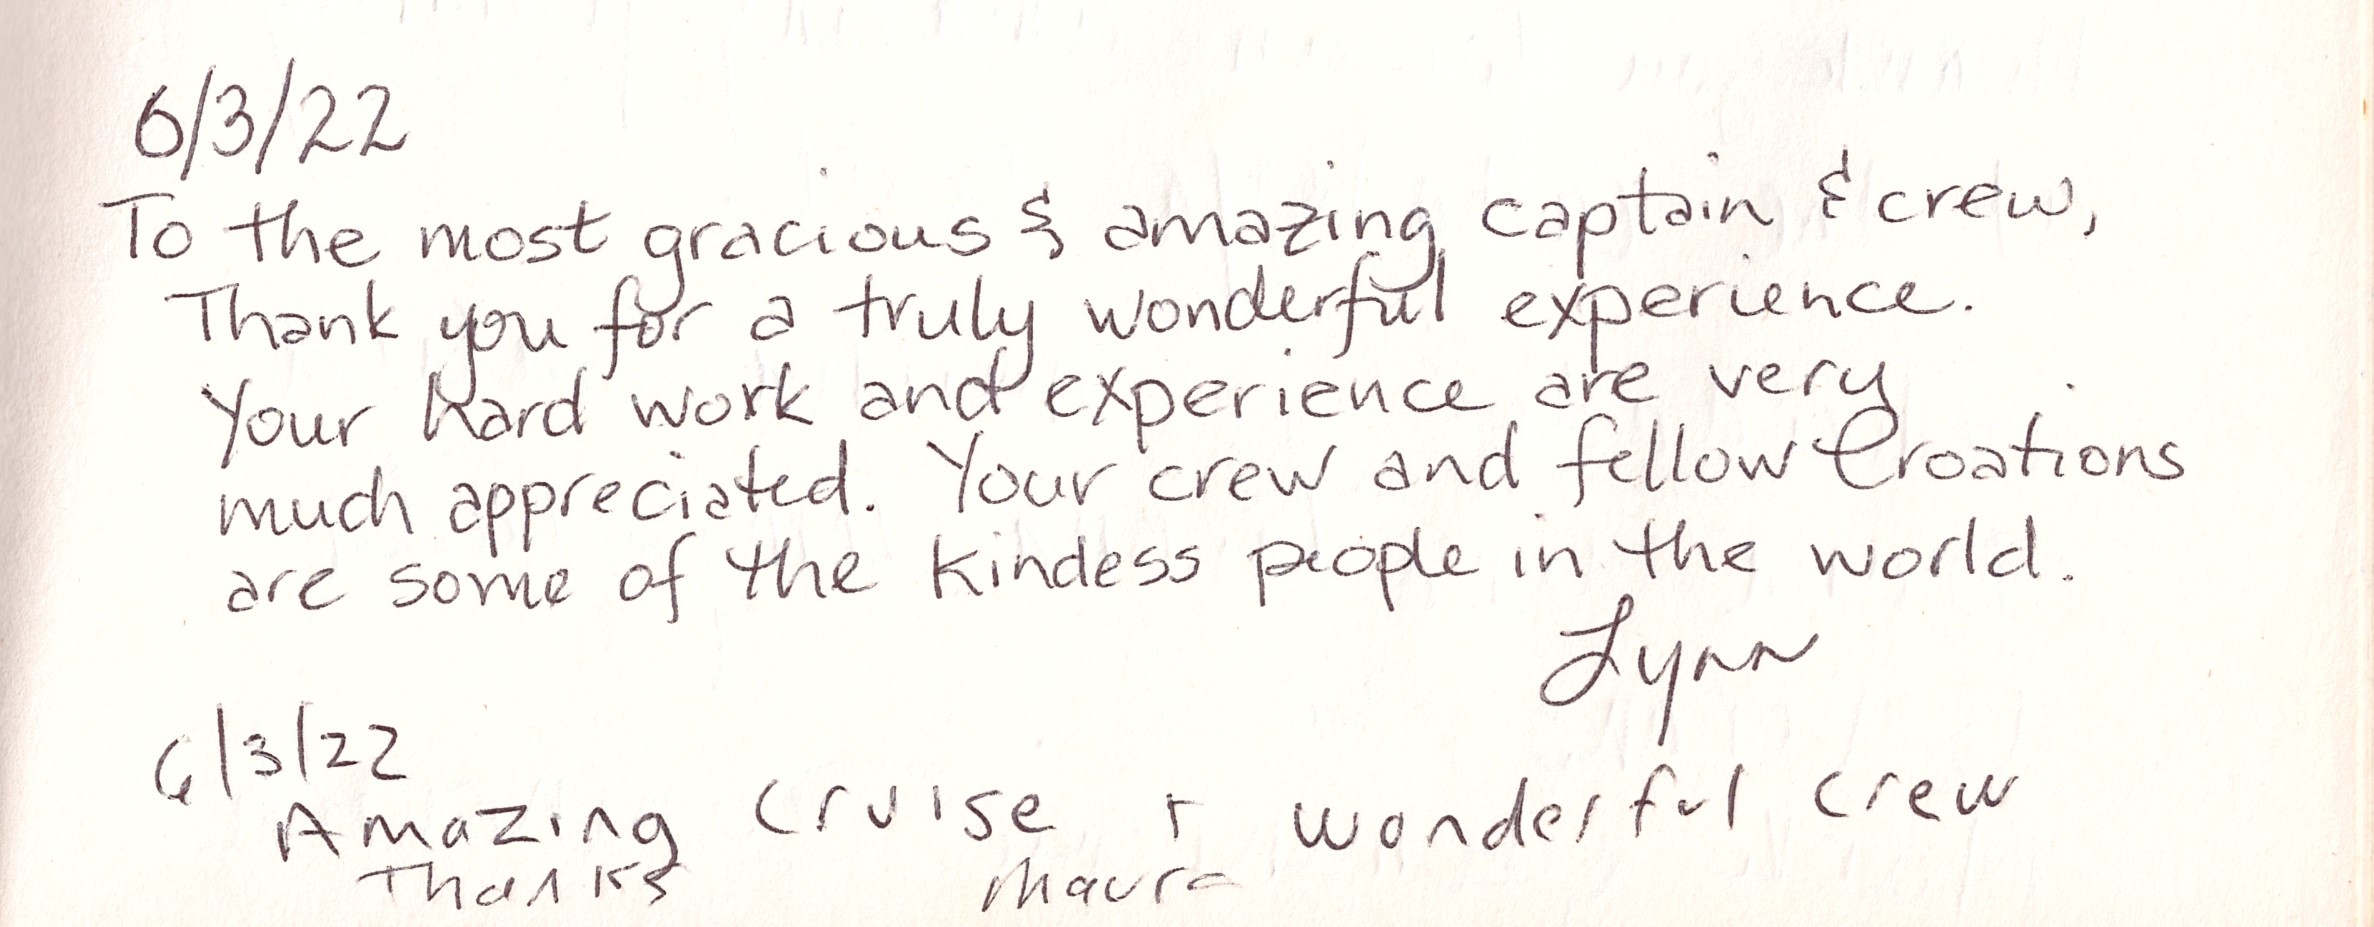 6/3/22
To the most gracious & amazing captain & crew,
Thank you for a truly wonderful experience.
Your hard work and experience are very
much appreciated. Your crew and fellow Croations
are some of the kindess people in the world.
Lynn
6/3/22
Amazing cruise + wonderful crew
Thanks Maura